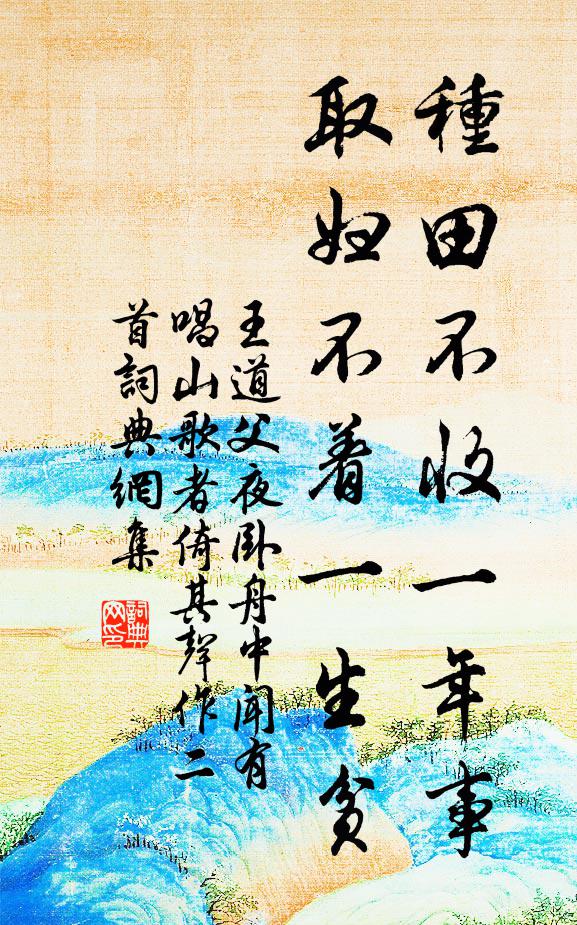 種田不收一年事
取妇不着一生貧
王道父夜卧舟中聞有
唱山歌者倚其聲作二
首詞典網集
詞典
网印